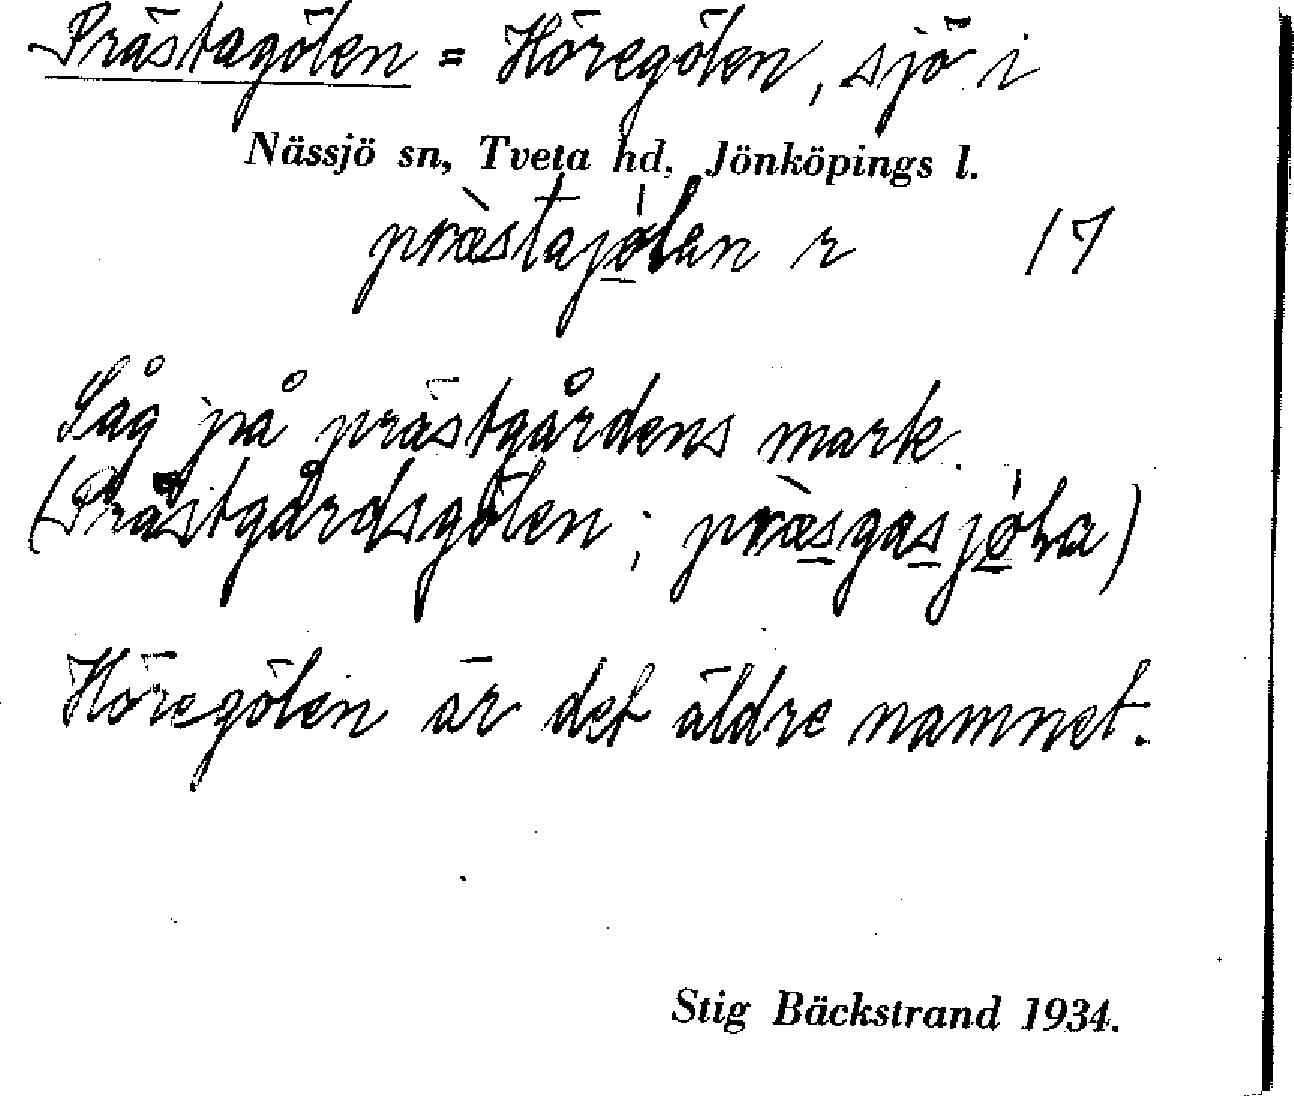 Prästagölen = Höregölen, sjö i
Nässjö sn, Tveta hd, Jönköpings l.
præ̀stajǿlan r 17
Låg på prästgårdens mark.
(Prästgårdsgölen; præ̀sgasjǿla)
Höregölen är det äldre namnet.
Stig Bäckstrand 1934.